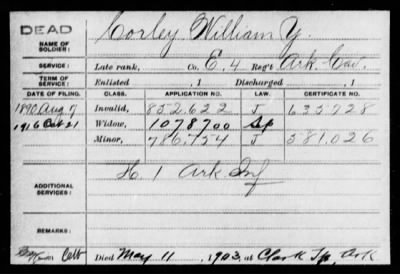 DEAD
NAME OF SOLDIER: Corley William Y.
SERVICE: Late rank, Co. E. 4 Reg't Ark Cav.
TERM OF SERVICE: Enlisted , 1 Discharged , 1
DATE OF FILING. CLASS. APPLICATION NO. LAW. CERTIFICATE NO.
1890 Aug 7 Invalid, 852.622 J 635728
1916 Oct 21 Widow, 1078700 Sp
Minor, 786,754 J 581,026
ADDITIONAL SERVICES: H. 1 Ark Inf
REMARKS:
Died May 11, 1903, at Clark Tp, Ark